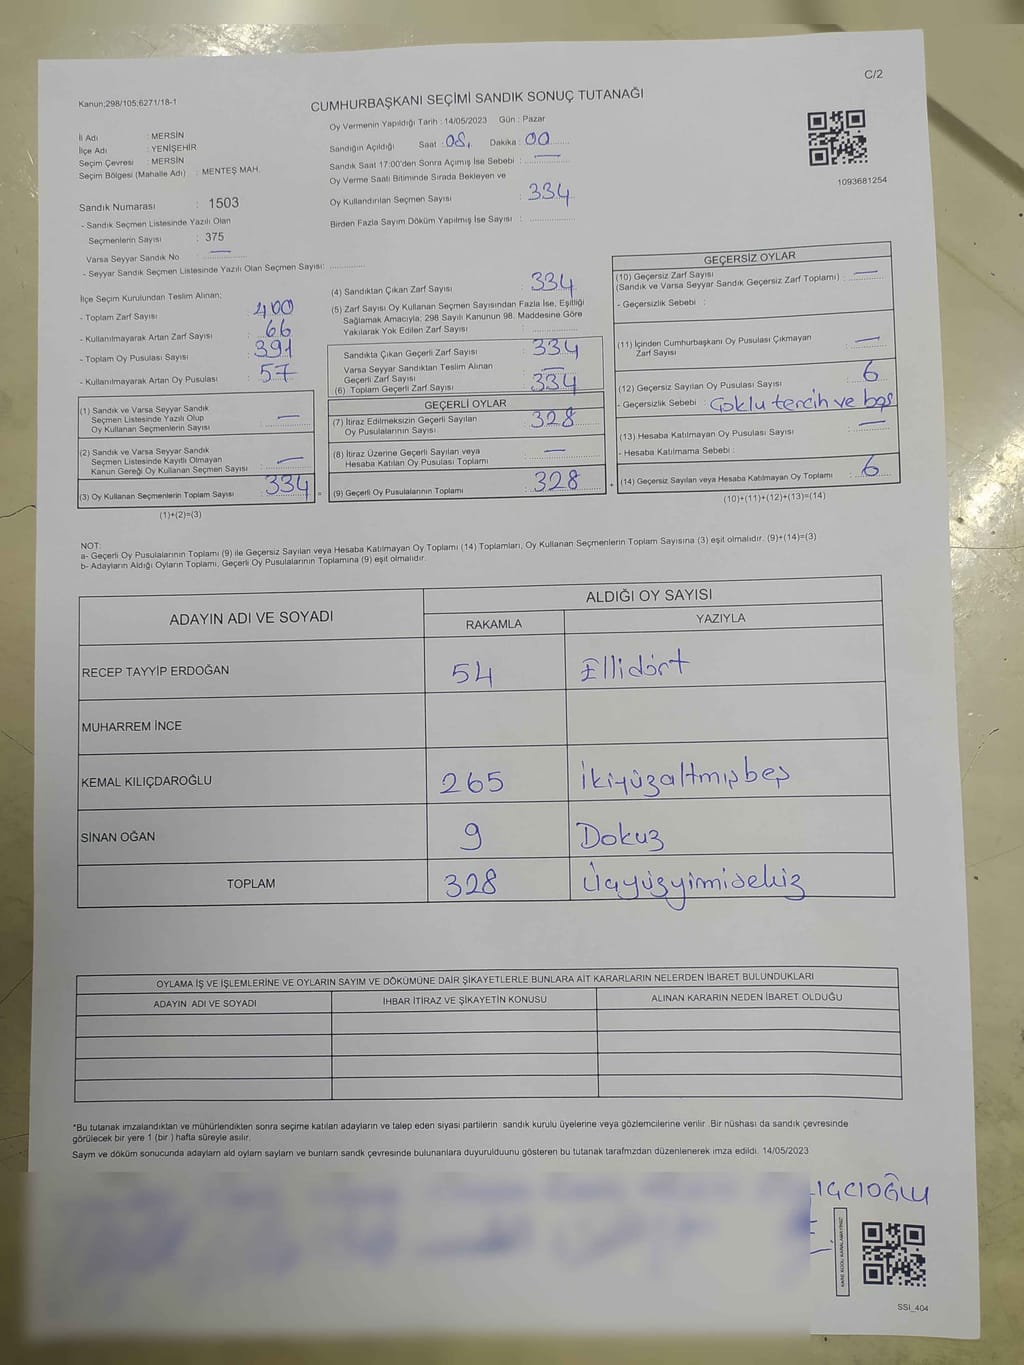 C/2
Kanun;298/105;6271/18-1
CUMHURBAŞKANI SEÇİMİ SANDIK SONUÇ TUTANAĞI
İl Adı : MERSİN
İlçe Adı : YENİŞEHİR
Seçim Çevresi : MERSİN
Seçim Bölgesi (Mahalle Adı) : MENTEŞ MAH.
Sandık Numarası : 1503
- Sandık Seçmen Listesinde Yazılı Olan
Seçmenlerin Sayısı : 375
Varsa Seyyar Sandık No : —
- Seyyar Sandık Seçmen Listesinde Yazılı Olan Seçmen Sayısı:
Oy Vermenin Yapıldığı Tarih : 14/05/2023 Gün : Pazar
Sandığın Açıldığı Saat : 08, Dakika : 00
Sandık Saat 17:00'den Sonra Açımış İse Sebebi : —
Oy Verme Saati Bitiminde Sırada Bekleyen ve
Oy Kullandırılan Seçmen Sayısı : 334
Birden Fazla Sayım Döküm Yapılmış İse Sayısı :
1093681254
İlçe Seçim Kurulundan Teslim Alınan;
- Toplam Zarf Sayısı : 400
- Kullanılmayarak Artan Zarf Sayısı : 66
- Toplam Oy Pusulası Sayısı : 391
- Kullanılmayarak Artan Oy Pusulası : 57
(1) Sandık ve Varsa Seyyar Sandık
Seçmen Listesinde Yazılı Olup
Oy Kullanan Seçmenlerin Sayısı : —
(2) Sandık ve Varsa Seyyar Sandık
Seçmen Listesinde Kayıtlı Olmayan
Kanun Gereği Oy Kullanan Seçmen Sayısı : —
(3) Oy Kullanan Seçmenlerin Toplam Sayısı : 334 =
(1)+(2)=(3)
(4) Sandıktan Çıkan Zarf Sayısı : 334
(5) Zarf Sayısı Oy Kullanan Seçmen Sayısından Fazla İse, Eşitliği
Sağlamak Amacıyla; 298 Sayılı Kanunun 98. Maddesine Göre
Yakılarak Yok Edilen Zarf Sayısı :
Sandıkta Çıkan Geçerli Zarf Sayısı : 334
Varsa Seyyar Sandıktan Teslim Alınan
Geçerli Zarf Sayısı : —
(6) Toplam Geçerli Zarf Sayısı : 334
GEÇERLİ OYLAR
(7) İtiraz Edilmeksizin Geçerli Sayılan
Oy Pusulalarının Sayısı : 328
(8) İtiraz Üzerine Geçerli Sayılan veya
Hesaba Katılan Oy Pusulası Toplamı : —
(9) Geçerli Oy Pusulalarının Toplamı : 328 +
GEÇERSİZ OYLAR
(10) Geçersiz Zarf Sayısı
(Sandık ve Varsa Seyyar Sandık Geçersiz Zarf Toplamı) : —
- Geçersizlik Sebebi :
(11) İçinden Cumhurbaşkanı Oy Pusulası Çıkmayan
Zarf Sayısı : —
(12) Geçersiz Sayılan Oy Pusulası Sayısı : 6
- Geçersizlik Sebebi : Çoklu tercih ve boş
(13) Hesaba Katılmayan Oy Pusulası Sayısı : —
- Hesaba Katılmama Sebebi :
(14) Geçersiz Sayılan veya Hesaba Katılmayan Oy Toplamı : 6
(10)+(11)+(12)+(13)=(14)
NOT:
a- Geçerli Oy Pusulalarının Toplamı (9) ile Geçersiz Sayılan veya Hesaba Katılmayan Oy Toplamı (14) Toplamları, Oy Kullanan Seçmenlerin Toplam Sayısına (3) eşit olmalıdır. (9)+(14)=(3)
b- Adayların Aldığı Oyların Toplamı, Geçerli Oy Pusulalarının Toplamına (9) eşit olmalıdır.
ADAYIN ADI VE SOYADI
ALDIĞI OY SAYISI
RAKAMLA YAZIYLA
RECEP TAYYİP ERDOĞAN 54 Ellidört
MUHARREM İNCE
KEMAL KILIÇDAROĞLU 265 İkiyüzaltmışbeş
SİNAN OĞAN 9 Dokuz
TOPLAM 328 Üçyüzyirmisekiz
OYLAMA İŞ VE İŞLEMLERİNE VE OYLARIN SAYIM VE DÖKÜMÜNE DAİR ŞİKAYETLERLE BUNLARA AİT KARARLARIN NELERDEN İBARET BULUNDUKLARI
ADAYIN ADI VE SOYADI İHBAR İTİRAZ VE ŞİKAYETİN KONUSU ALINAN KARARIN NEDEN İBARET OLDUĞU
*Bu tutanak imzalandıktan ve mühürlendikten sonra seçime katılan adayların ve talep eden siyasi partilerin sandık kurulu üyelerine veya gözlemcilerine verilir .Bir nüshası da sandık çevresinde
görülecek bir yere 1 (bir ) hafta süreyle asılır.
Saym ve döküm sonucunda adaylarn ald oylarn saylarn ve bunlarn sandk çevresinde bulunanlara duyurulduunu gösteren bu tutanak tarafmzdan düzenlenerek imza edildi. 14/05/2023
SSİ_404